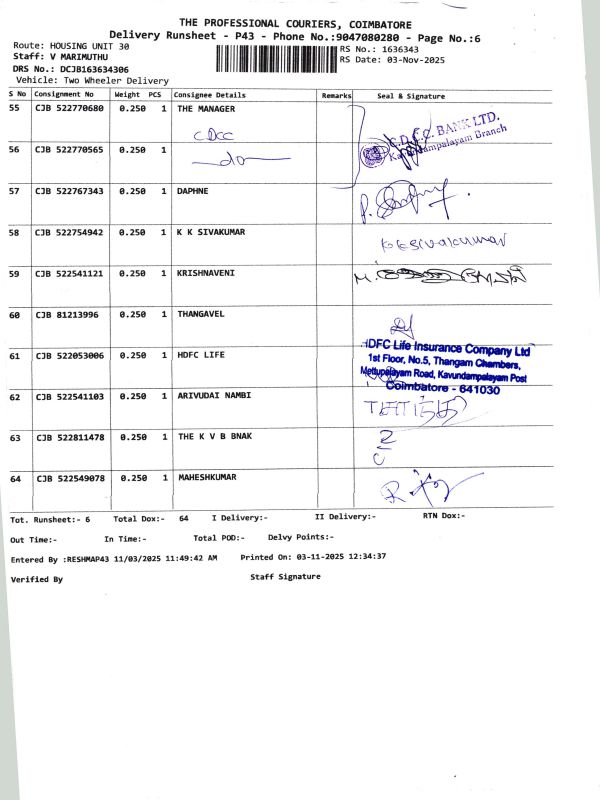 THE PROFESSIONAL COURIERS, COIMBATORE
Delivery Runsheet - P43 - Phone No.:9047080280 - Page No.:6
Route: HOUSING UNIT 30
RS No.: 1636343
Staff: V MARIMUTHU
RS Date: 03-Nov-2025
DRS No.: DCJB163634306
Vehicle: Two Wheeler Delivery
S No Consignment No Weight PCS Consignee Details Remarks Seal & Signature
55 CJB 522770680 0.250 1 THE MANAGER
CDCC
C.D.C.C. BANK LTD.
Kavundampalayam Branch
56 CJB 522770565 0.250 1
—do—
57 CJB 522767343 0.250 1 DAPHNE
58 CJB 522754942 0.250 1 K K SIVAKUMAR
59 CJB 522541121 0.250 1 KRISHNAVENI
60 CJB 81213996 0.250 1 THANGAVEL
61 CJB 522053006 0.250 1 HDFC LIFE
HDFC Life Insurance Company Ltd
1st Floor, No.5, Thangam Chambers,
Mettupalayam Road, Kavundampalayam Post
Coimbatore - 641030
62 CJB 522541103 0.250 1 ARIVUDAI NAMBI
63 CJB 522811478 0.250 1 THE K V B BNAK
64 CJB 522549078 0.250 1 MAHESHKUMAR
Tot. Runsheet:- 6 Total Dox:- 64 I Delivery:- II Delivery:- RTN Dox:-
Out Time:- In Time:- Total POD:- Delvy Points:-
Entered By :RESHMAP43 11/03/2025 11:49:42 AM Printed On: 03-11-2025 12:34:37
Verified By Staff Signature